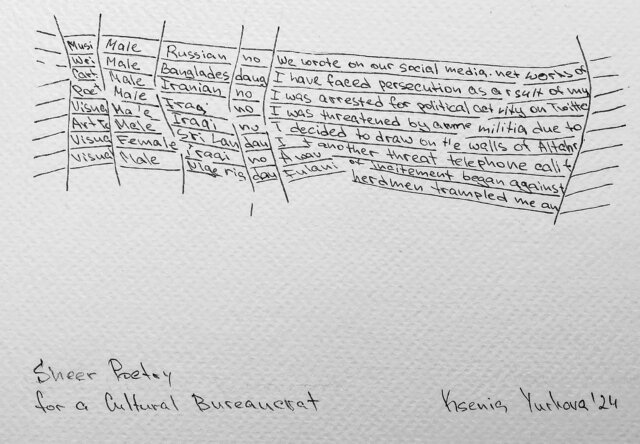 Musi Male Russian no We wrote on our social media networks of
Wri Male Banglades daug I have faced persecution as a rsult of my
Cart Male Iranian no I was arrested for political activity on Twitte
Poet Male Iraq no I was threatened by arme militia due to
Visua Male Iraqi no I decided to draw on the walls of
Male Sri Lan dau I another threat telephone call
Visua Female Iraqi no A wav of incitement began against
Visual Male Nigeria dau Fulani herdmen trampled me an
Sheer Poetry
for a Cultural Bureaucrat
Ksenia Yurkova '24